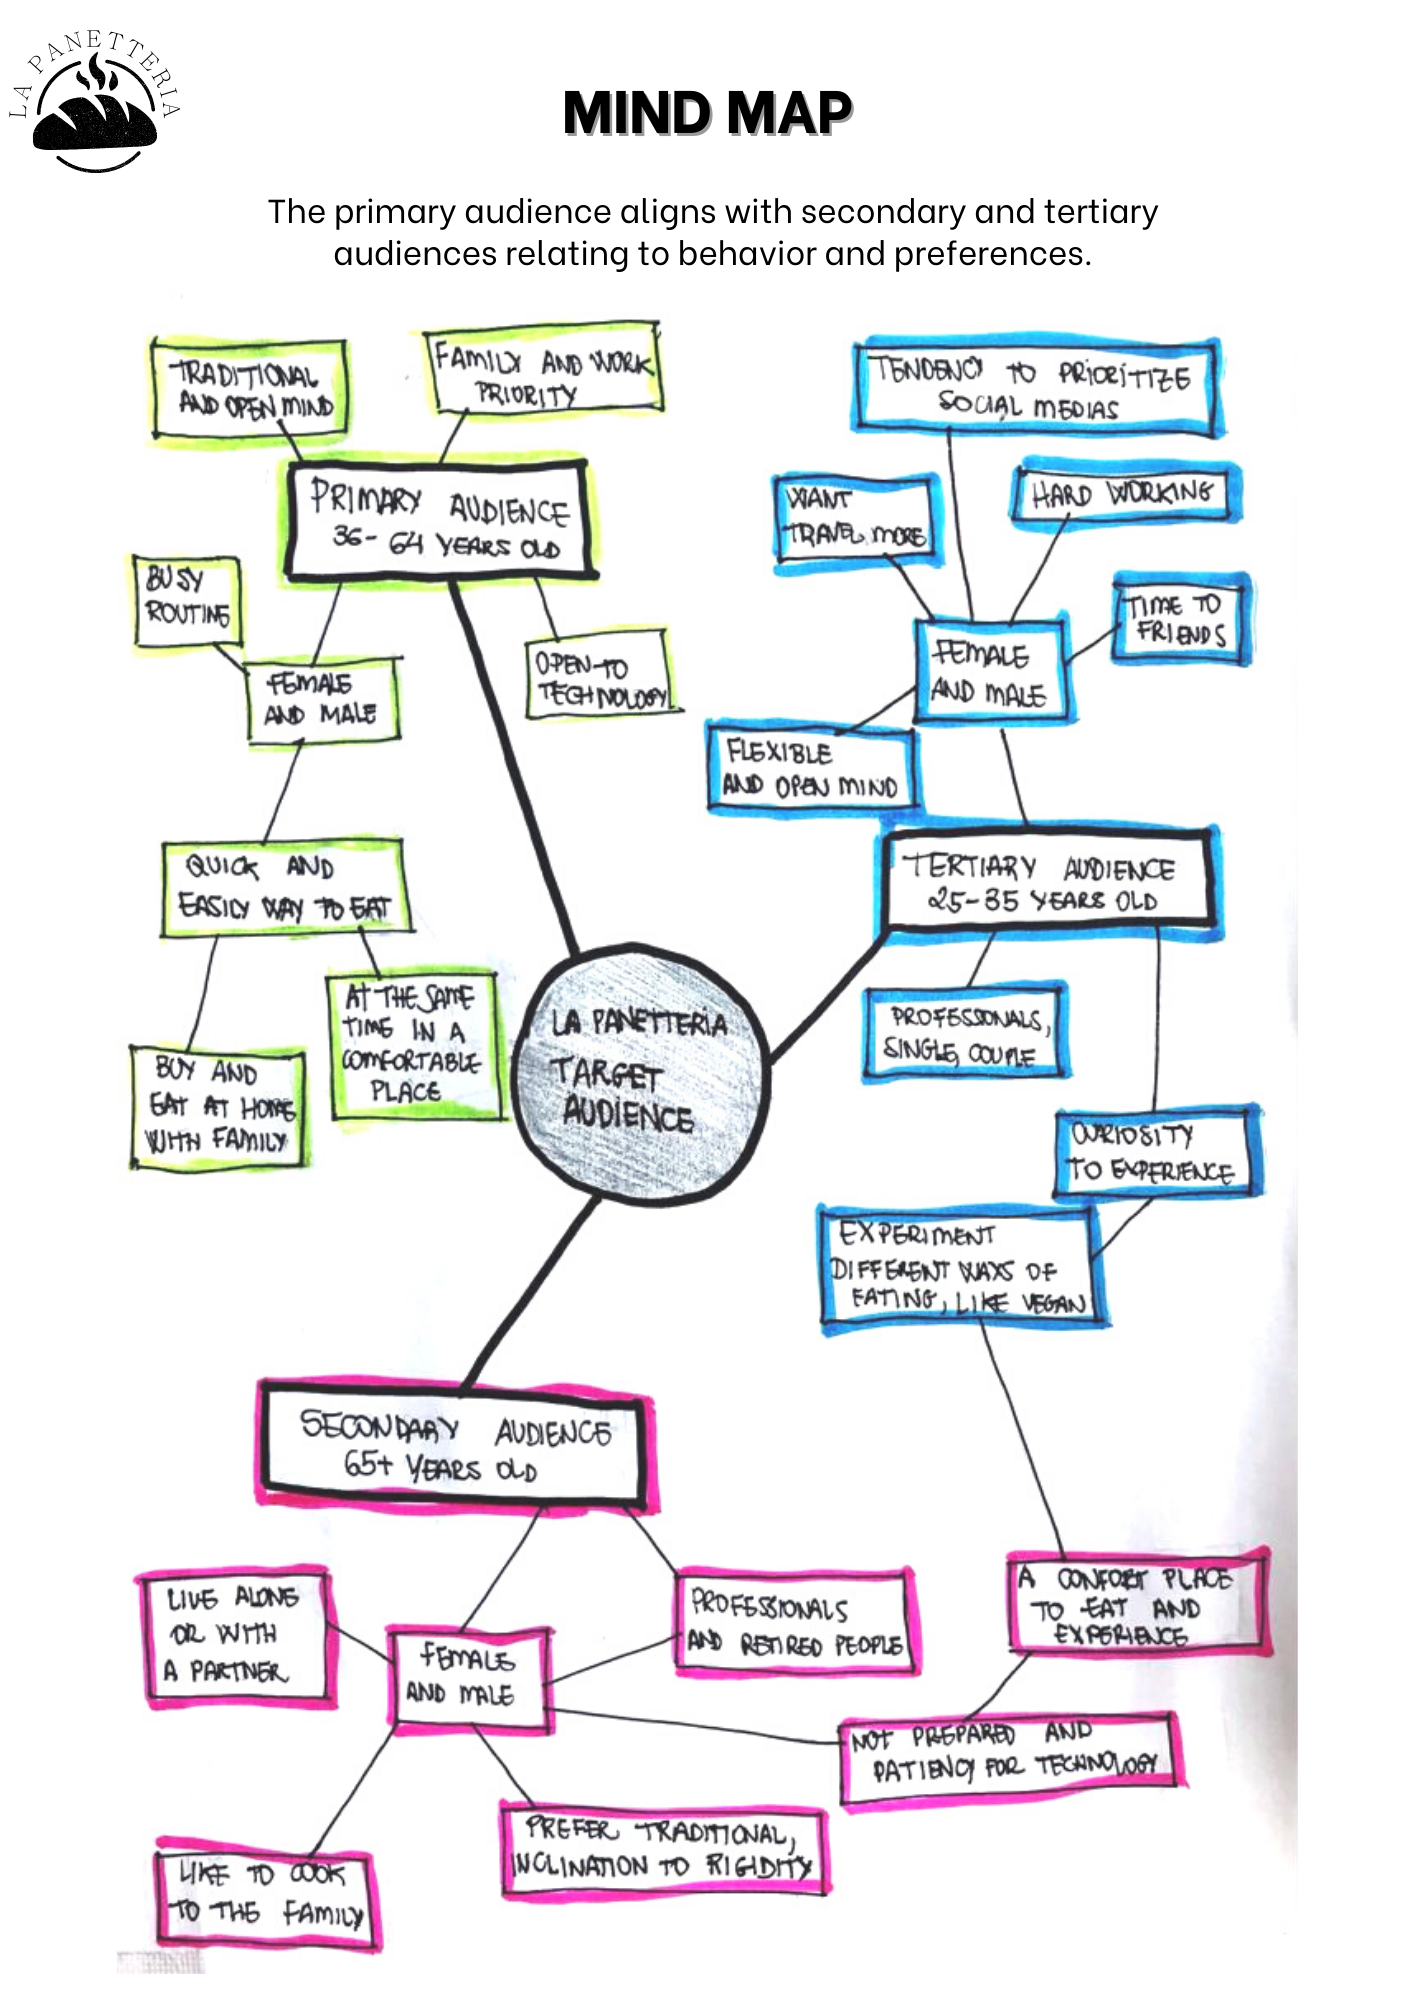 LA PANETTERIA
MIND MAP
The primary audience aligns with secondary and tertiary
audiences relating to behavior and preferences.
TRADITIONAL
AND OPEN MIND
FAMILY AND WORK
PRIORITY
PRIMARY AUDIENCE
36-64 YEARS OLD
BUSY
ROUTINE
FEMALE
AND MALE
OPEN TO
TECHNOLOGY
QUICK AND
EASILY WAY TO EAT
AT THE SAME
TIME IN A
COMFORTABLE
PLACE
BUY AND
EAT AT HOME
WITH FAMILY
TENDENCY TO PRIORITIZE
SOCIAL MEDIAS
WANT
TRAVEL MORE
HARD WORKING
TIME TO
FRIENDS
FEMALE
AND MALE
FLEXIBLE
AND OPEN MIND
TERTIARY AUDIENCE
25-35 YEARS OLD
PROFESSIONALS,
SINGLE, COUPLE
CURIOSITY
TO EXPERIENCE
EXPERIMENT
DIFFERENT WAYS OF
EATING, LIKE VEGAN
LA PANETTERIA
TARGET
AUDIENCE
SECONDARY AUDIENCE
65+ YEARS OLD
LIVE ALONE
OR WITH
A PARTNER
FEMALE
AND MALE
PROFESSIONALS
AND RETIRED PEOPLE
A CONFORT PLACE
TO EAT AND
EXPERIENCE
NOT PREPARED AND
PATIENCY FOR TECHNOLOGY
PREFER TRADITIONAL,
INCLINATION TO RIGIDITY
LIKE TO COOK
TO THE FAMILY